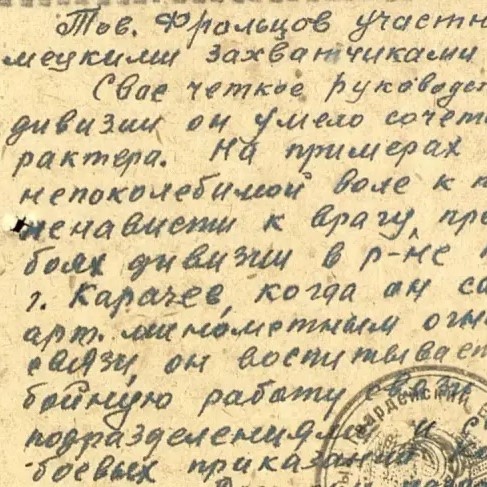 Тов. Фральцов участн
мецкими захватчиками
Свое четкое руководст
дивизии он умело сочет
рактера. На примерах
непоколебимой воле к п
ненависти к врагу, пре
боях дивизии в р-не
г. Карачев, когда он са
арт. минометным огн
связи, он воспитывает
бойную работу связи
подразделениями и с
боевых приказаний ко